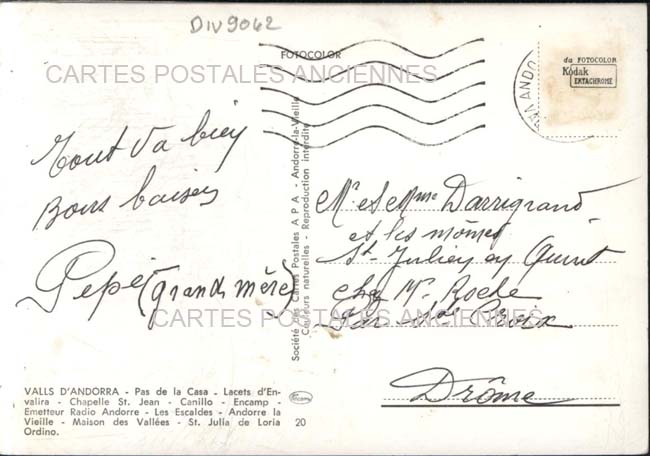 DIV9042
FOTOCOLOR
CARTES POSTALES ANCIENNES
da FOTOCOLOR
Kodak
EKTACHROME
Tout va bien
Bons baisers
Pépé (grand mère)
Société des Cartes Postales A P A - Andorre-la-Vieille
Couleurs naturelles - Reproduction interdite
Mr et Mme Darrigrand
et les mômes
St Julien en Quint
chez Mr. Roche
Par
Drôme
CARTES POSTALES ANCIENNES
VALLS D'ANDORRA - Pas de la Casa - Lacets d'En-
valira - Chapelle St. Jean - Canillo - Encamp -
Emetteur Radio Andorre - Les Escaldes - Andorre la
Vieille - Maison des Vallées - St. Julia de Loria
Ordino.
20